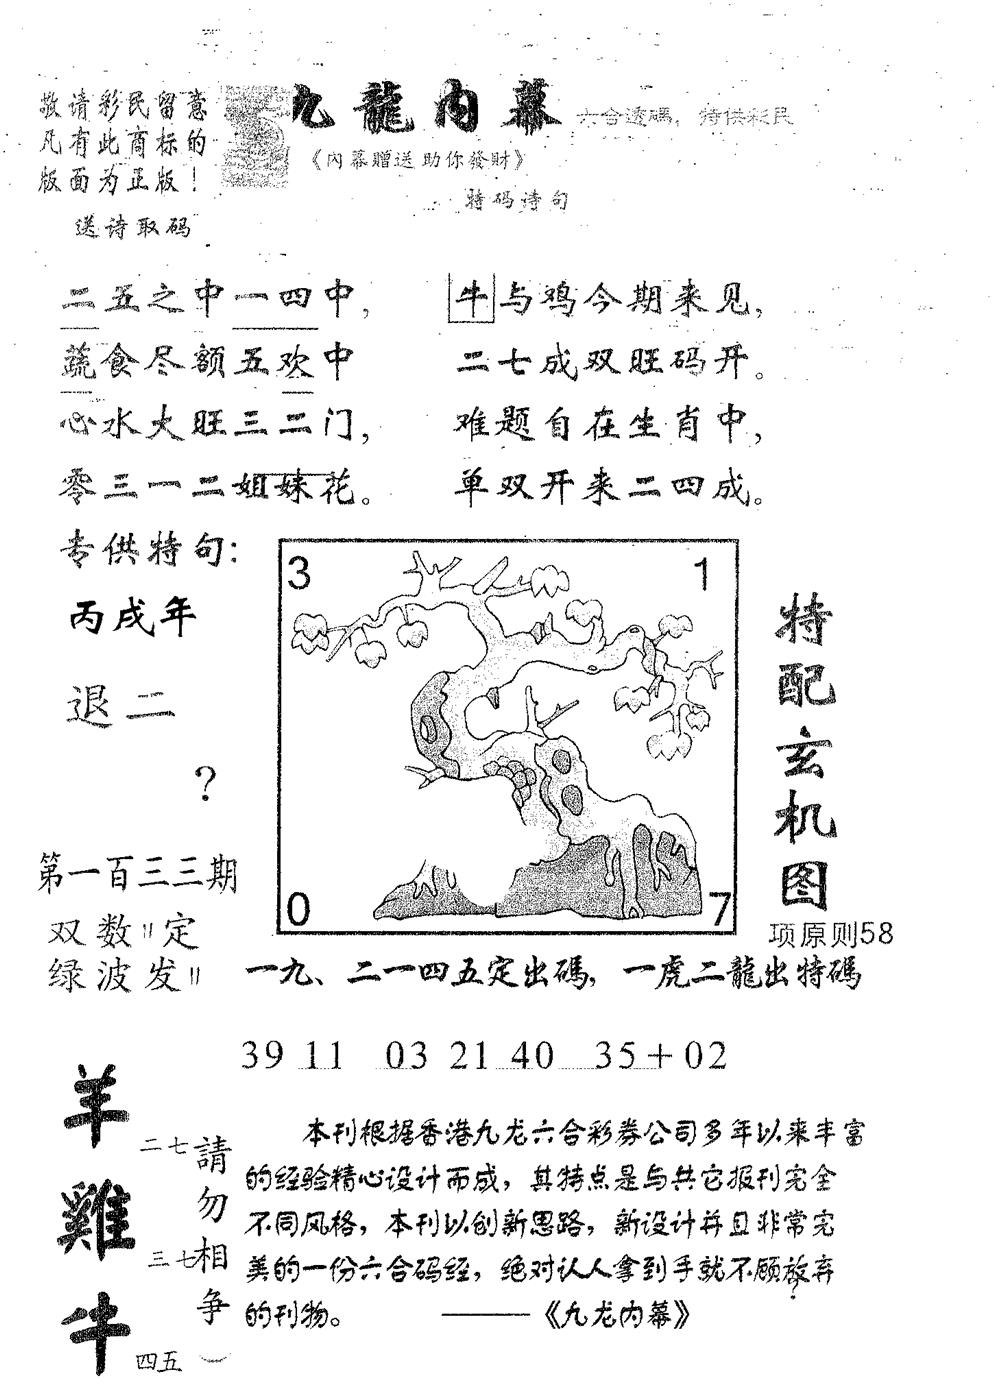 敬请彩民留意
凡有此商标的
版面为正版！
送诗取码
九龍内幕
六合透碼，特供彩民
《内幕赠送助你發财》
特码诗句
二五之中一四中，
蔬食尽额五欢中
心水大旺三二门，
零三一二姐妹花。
牛与鸡今期来见，
二七成双旺码开。
难题自在生肖中，
单双开来二四成。
专供特句：
丙戌年
退二
？
第一百三三期
双数〃定
绿波发〃
3
1
0
7
特配玄机图
项原则58
一九、二一四五定出碼，一虎二龍出特碼
39 11 03 21 40 35+02
羊
雞
牛
二七
三七
四五
請勿相争
本刊根据香港九龙六合彩券公司多年以来丰富
的经验精心设计而成，其特点是与其它报刊完全
不同风格，本刊以创新思路，新设计并且非常完
美的一份六合码经，绝对认人拿到手就不顾放弃
的刊物。 ——《九龙内幕》